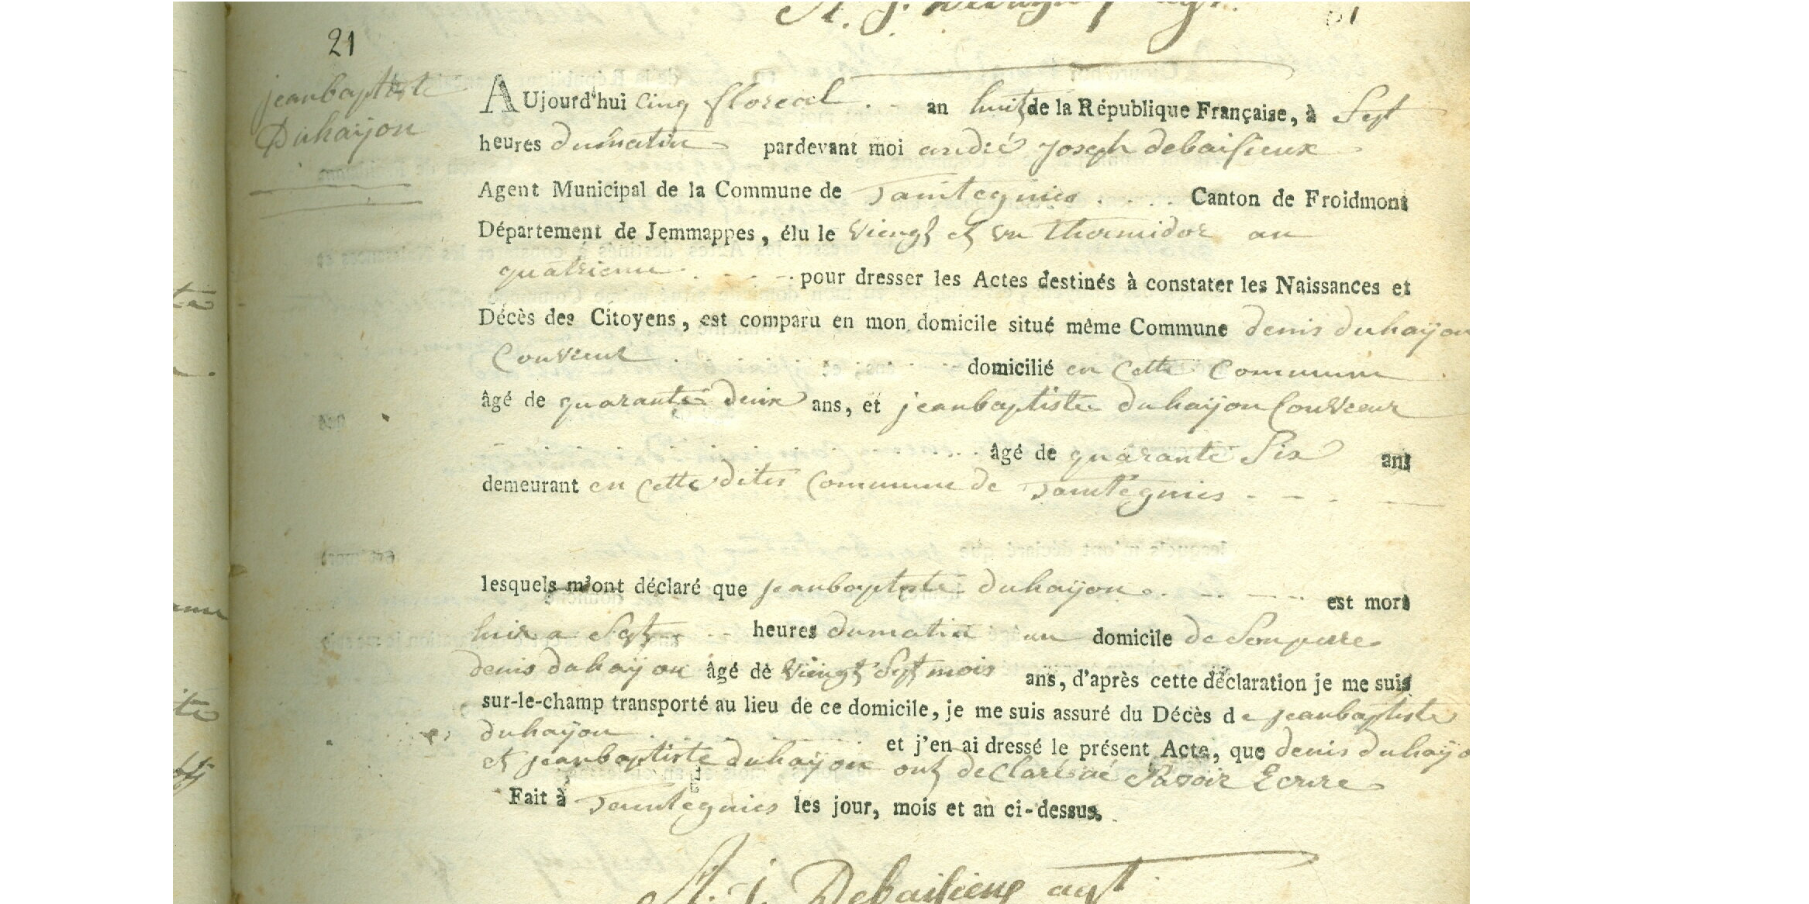 21
jeanbaptiste
Duhaÿon
AUjourd'hui Cinq floreal an huit de la République Française, à Sept
heures dumatin pardevant moi andré joseph debaisieux
Agent Municipal de la Commune de Taintegnies Canton de Froidmont
Département de Jemmappes, élu le viengt et un thermidor an
quatrieme pour dresser les Actes destinés à constater les Naissances et
Décès des Citoyens, est comparu en mon domicile situé même Commune denis duhaÿon
Couvreur domicilié en cette Commune
âgé de quarante deux ans, et jeanbaptiste duhaÿon Couvreur
âgé de quarante Six ans
demeurant en cette dites Commune de Taintegnies
lesquels m'ont déclaré que jeanbaptiste duhaÿon est mort
hier a Sept heures dumatin au domicile de Sonpere
denis duhaÿon âgé de viengt Sept mois ans, d'après cette déclaration je me suis
sur-le-champ transporté au lieu de ce domicile, je me suis assuré du Décès de jeanbaptiste
duhaÿon et j'en ai dressé le présent Acte, que denis duhaÿo
et jeanbaptiste duhaÿon ont declaré Savoir Ecrire
Fait à Taintegnies les jour, mois et an ci-dessus.
A. j. Debaisieux agt